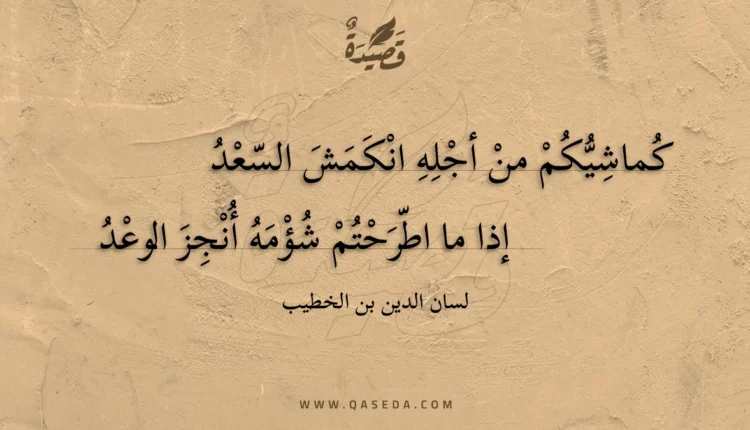 قَصِيدَةٌ
كُماشِيُّكُمْ منْ أجْلِهِ انْكَمَشَ السّعْدُ
إذا ما اطّرَحْتُمْ شُؤْمَهُ أُنْجِزَ الوعْدُ
لسان الدين بن الخطيب
WWW.QASEDA.COM